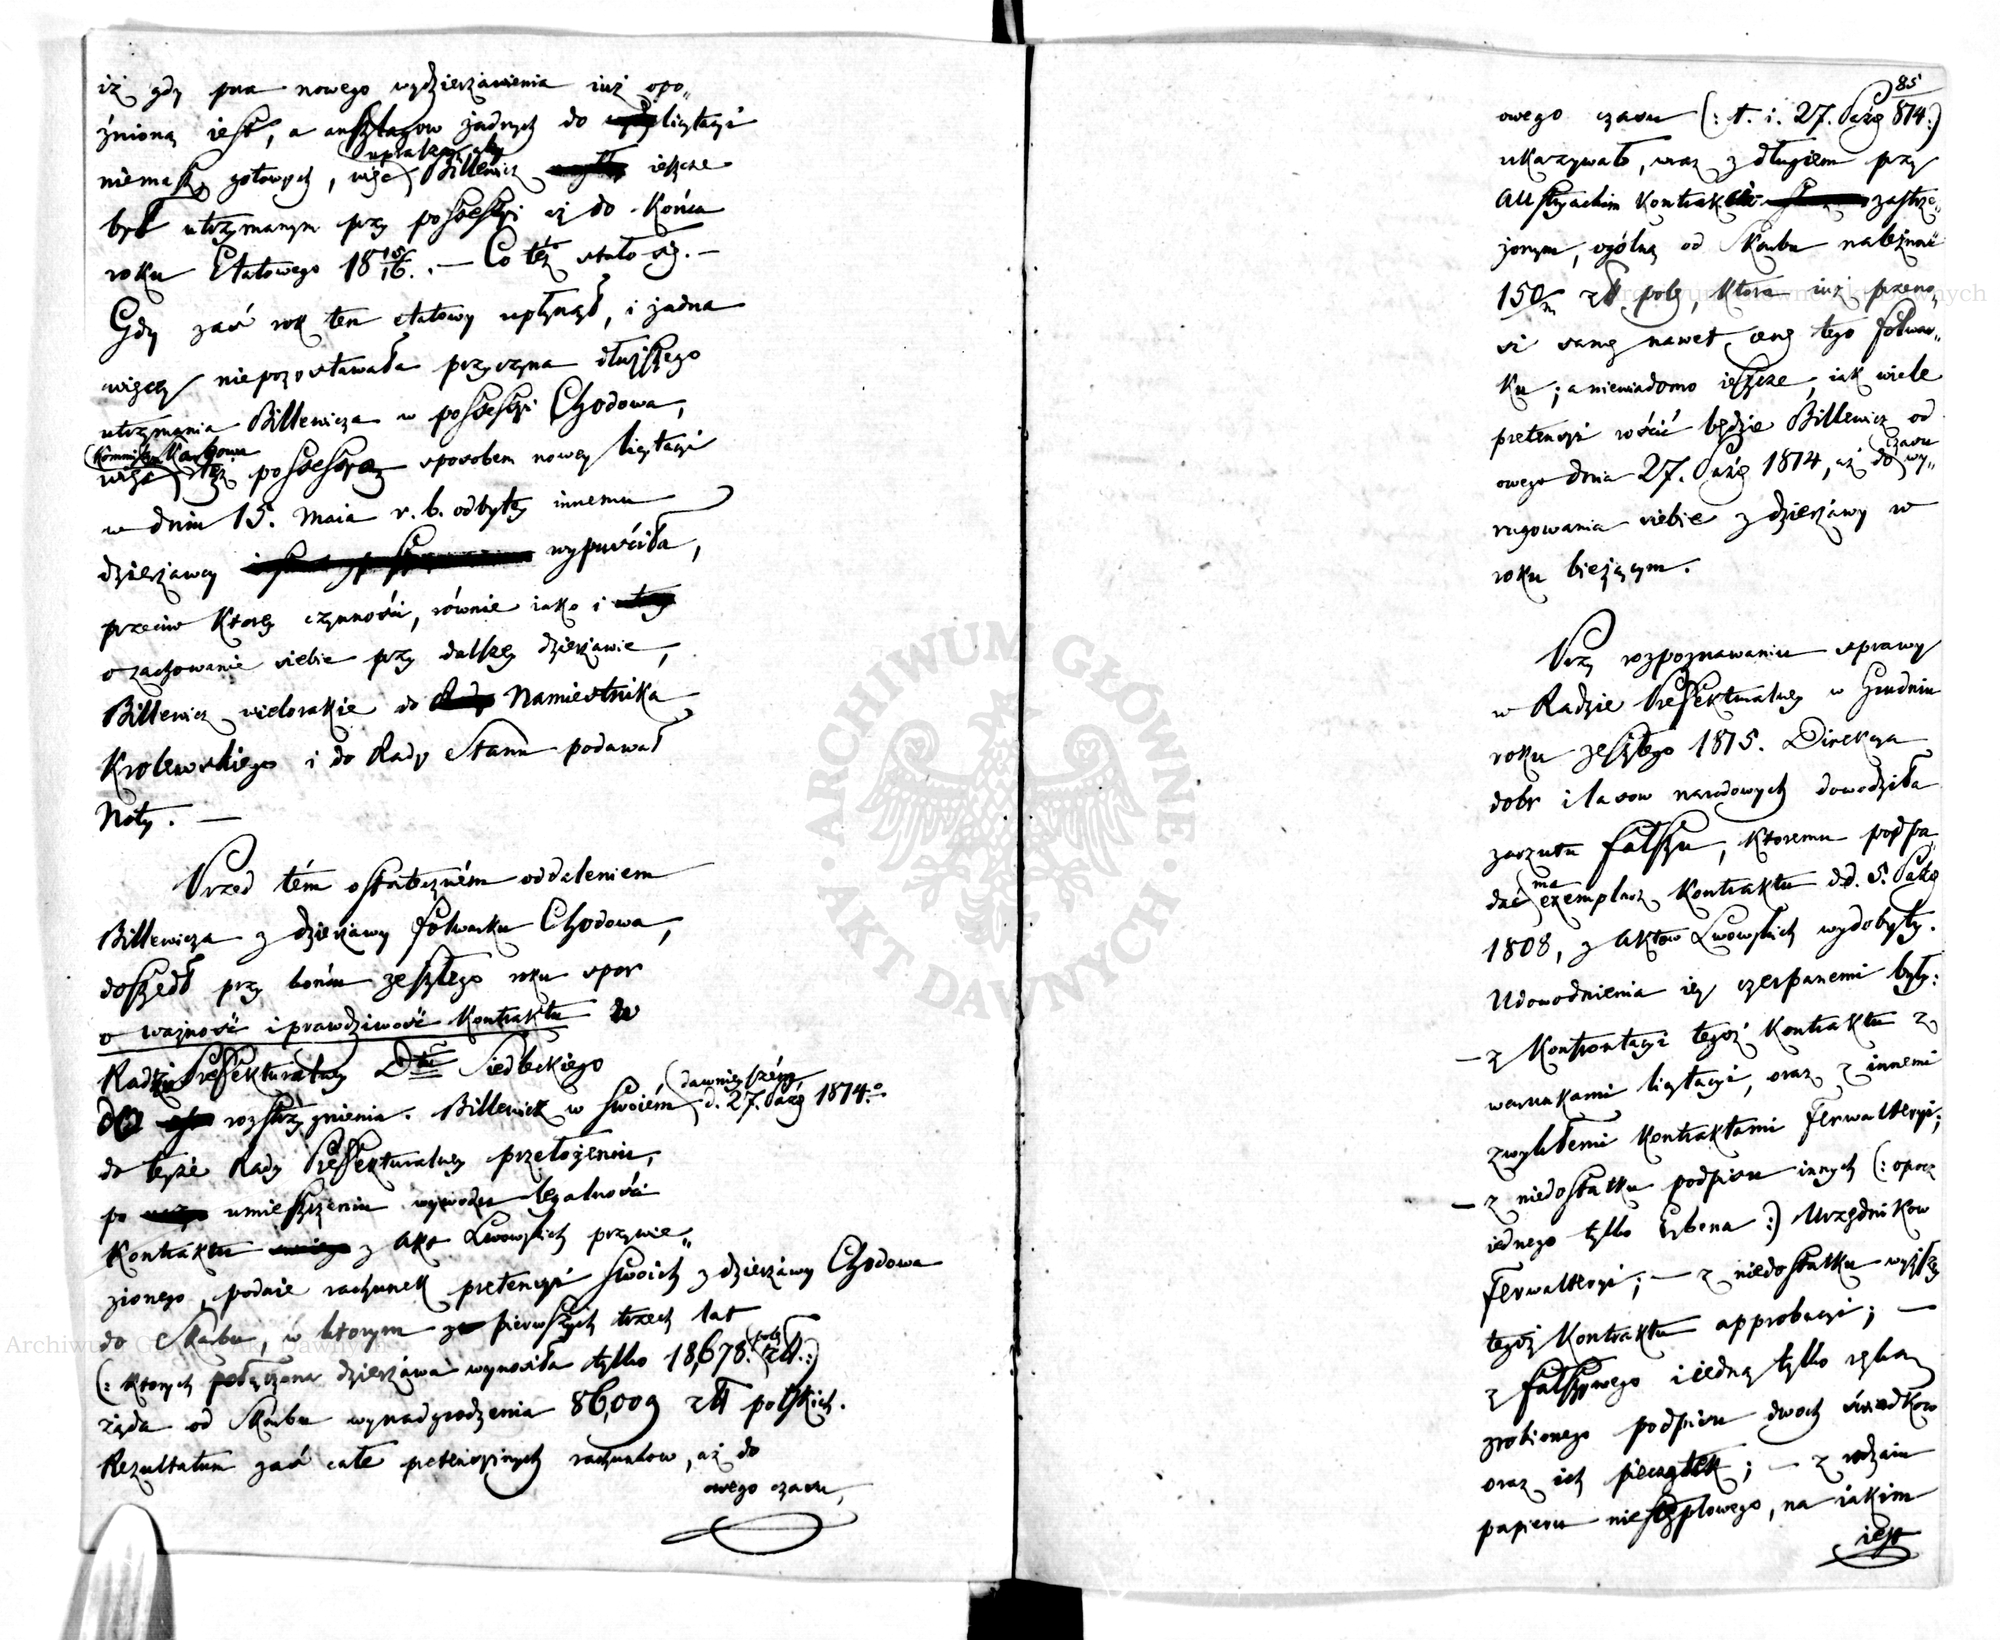 iż gdy pora nowego wydzierżawienia iuż opo„
źnioną iest, a anszlagow żadnych do licytacyi
niemasz gotowych, więc Billewicz ieszcze
uprasza, aby
był utrzymanym przy possessyi aż do końca
roku Etatowego 18 15/16. — Co też stało się. —
Gdy zaś rok ten etatowy upłynął, i żadna
więcey niepozostawała przyczyna dłuższego
utrzymania Billewicza w possessyi Chodowa,
Kommissya Skarbowa
więc też possessyą sposobem nowey licytacyi
w dniu 15. Maia r. b. odbytey innemu
dzierżawcy wypuściła,
przeciw ktorey czynności, równie iako i
o zachowanie siebie przy dalszey dzierżawie,
Billewicz wielorakie do Namiestnika
Krolewskiego i do Rady Stanu podawał
Noty. —
Przed tém ostateczném oddaleniem
Billewicza z dzierżawy folwarku Chodowa,
doszedł przy końcu zeszłego roku spor
o ważność i prawdziwość Kontraktu w
Radzie Prefekturalney Dttu Siedleckiego
do rozstrzygnienia. Billewicz w swoiém dawnieyszém d. 27. Paźź 1814.o
do teyże Rady Prefekturalney przełożeniu,
po umieszczeniu wywodu legalności
Kontraktu z Akt Lwowskich przywie„
zionego, podaie rachunek pretensyi swoich z dzierżawy Chodowa
do Skarbu, w ktorym za pierwszych trzech lat
(: ktorych połączona dzierżawa wynosiła tylko 18,678. pols. złł :)
żąda od Skarbu wynadgrodzenia 86,009 złł polskich.
Rezultatum zaś całe pretensyinych rachunkow, aż do
owego czasu,
85
owego czasu (: t. i. 27. Paźź 814:)
ukazywał, wraz z długiem przy
Austryackim Kontrakcie zastrze„
żonym, ogólną od Skarbu należność
150/m złł pols, ktora iuż przeno„
si samę nawet cenę tego folwar„
ku; a niewiadomo ieszcze, iak wiele
pretensyi rościć będzie Billewicz od
owego dnia 27. Paźź 1814, aż do czasu wy„
rugowania siebie z dzierżawy w
roku bieżącym.
Przy rozpoznawaniu sprawy
w Radzie Prefekturalney w Grudniu
roku zeszłego 1815. Direkcya
dobr i lasow narodowych dowodziła
zarzutu fałszu, ktoremu podpa„
dać ma exemplarz Kontraktu d.d. 5. Paźź
1808, z Aktow Lwowskich wydobyty.
Udowodnienia iey czerpanemi były:
— z Konfrontacyi tegoż Kontraktu z
warunkami licytacyi, oraz z innemi
zwykłemi Kontraktami Ferwalteryi;
— z niedostatku podpisu innych (: oprocz
iednego tylko Erbena :) Urzędnikow
Ferwalteryi; — z niedostatku wyższey
tegoż Kontraktu approbacyi; —
z fałszywego i iedną tylko ręką
zrobionego podpisu dwoch świadkow
oraz ich pieczątek; — z rodzaiu
papieru niestęplowego, na iakim
iest
Archiwum Główne Akt Dawnych
ARCHIWUM GŁÓWNE AKT DAWNYCH
Archiwum Główne Akt Dawnych